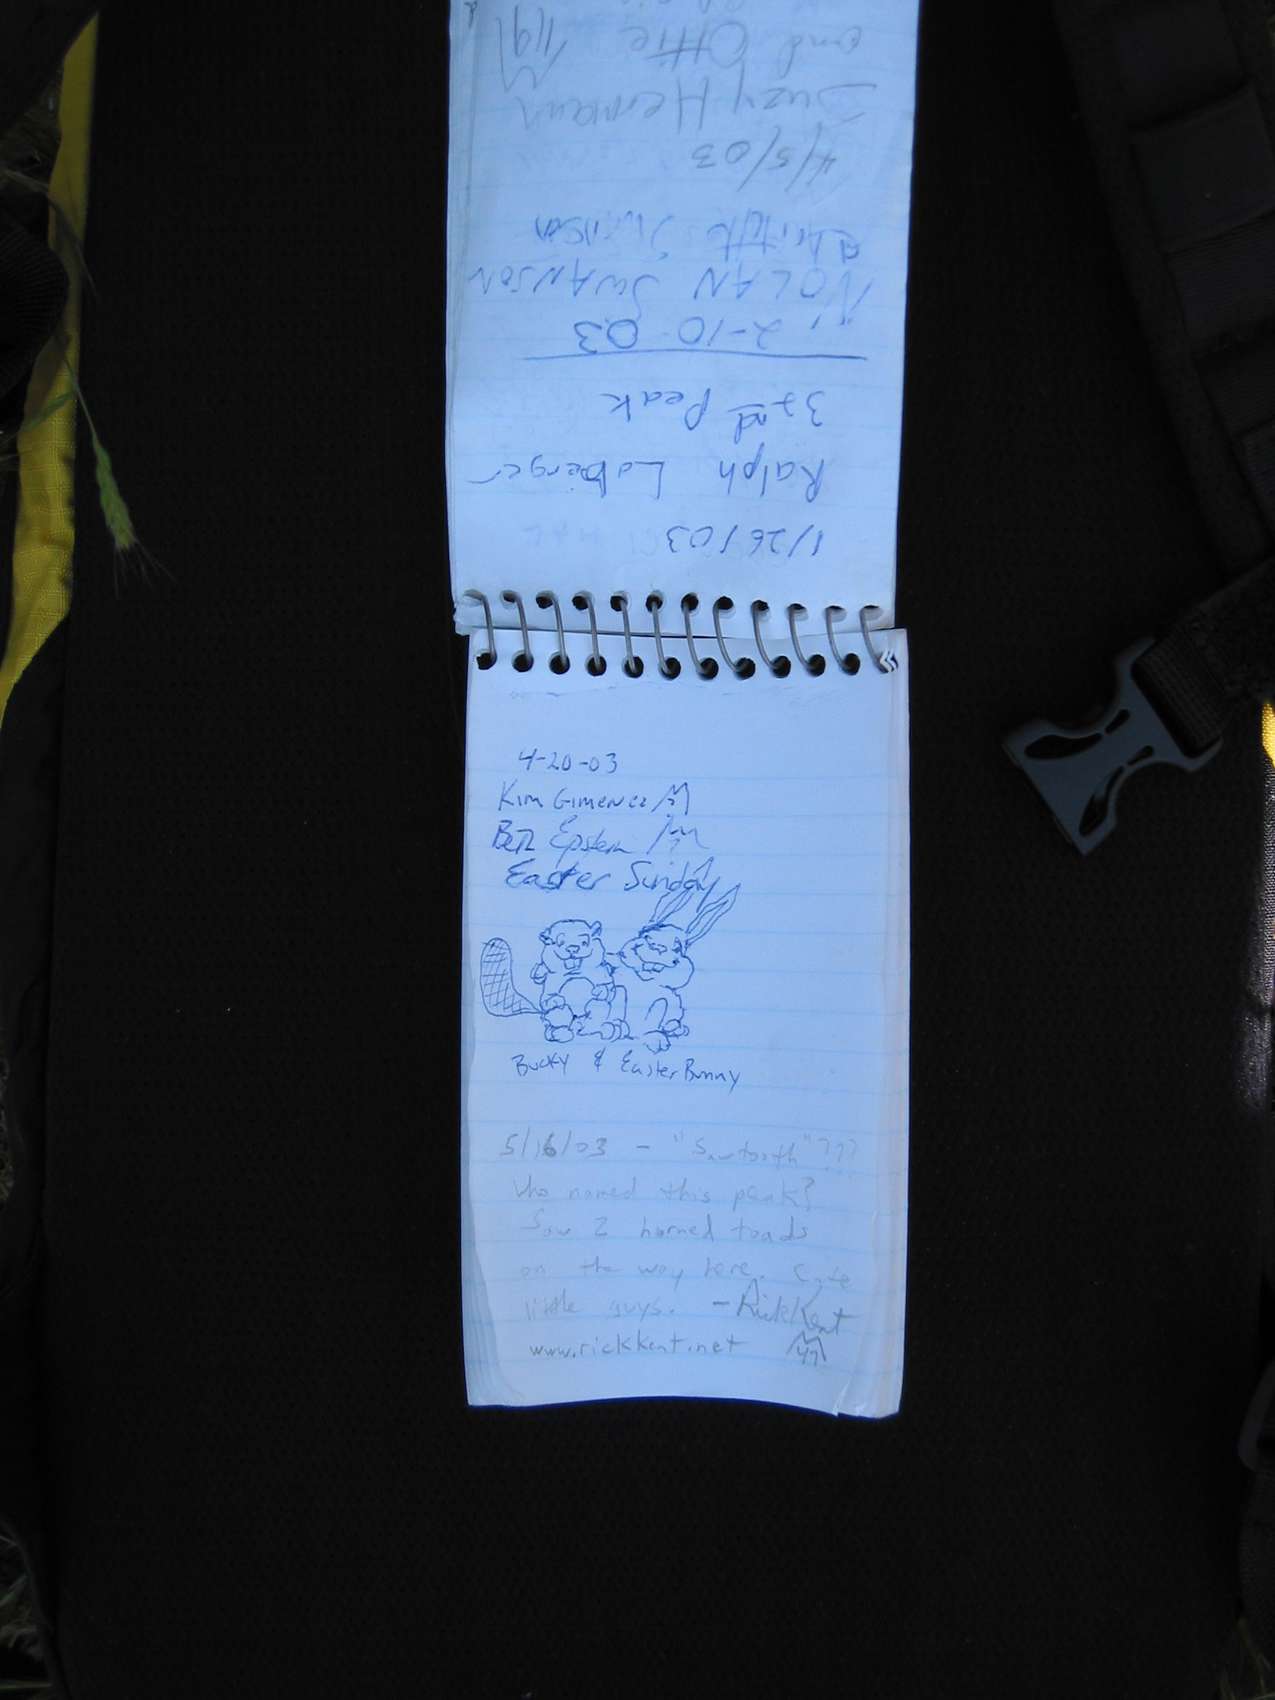 1/26/03
Ralph Loberger
32nd Peak
2-10-03
NOLAN SWANSON
Swanson
4/5/03
Suzy Hermann
and Ollie
4-20-03
Kim Gimenez
Epstein
Easter Sunday
Bucky & Easter Bunny
5/16/03 - "Sawtooth"???
Who named this peak?
Saw 2 horned toads
on the way here. Cute
little guys. - Rick Kent
www.rickkent.net